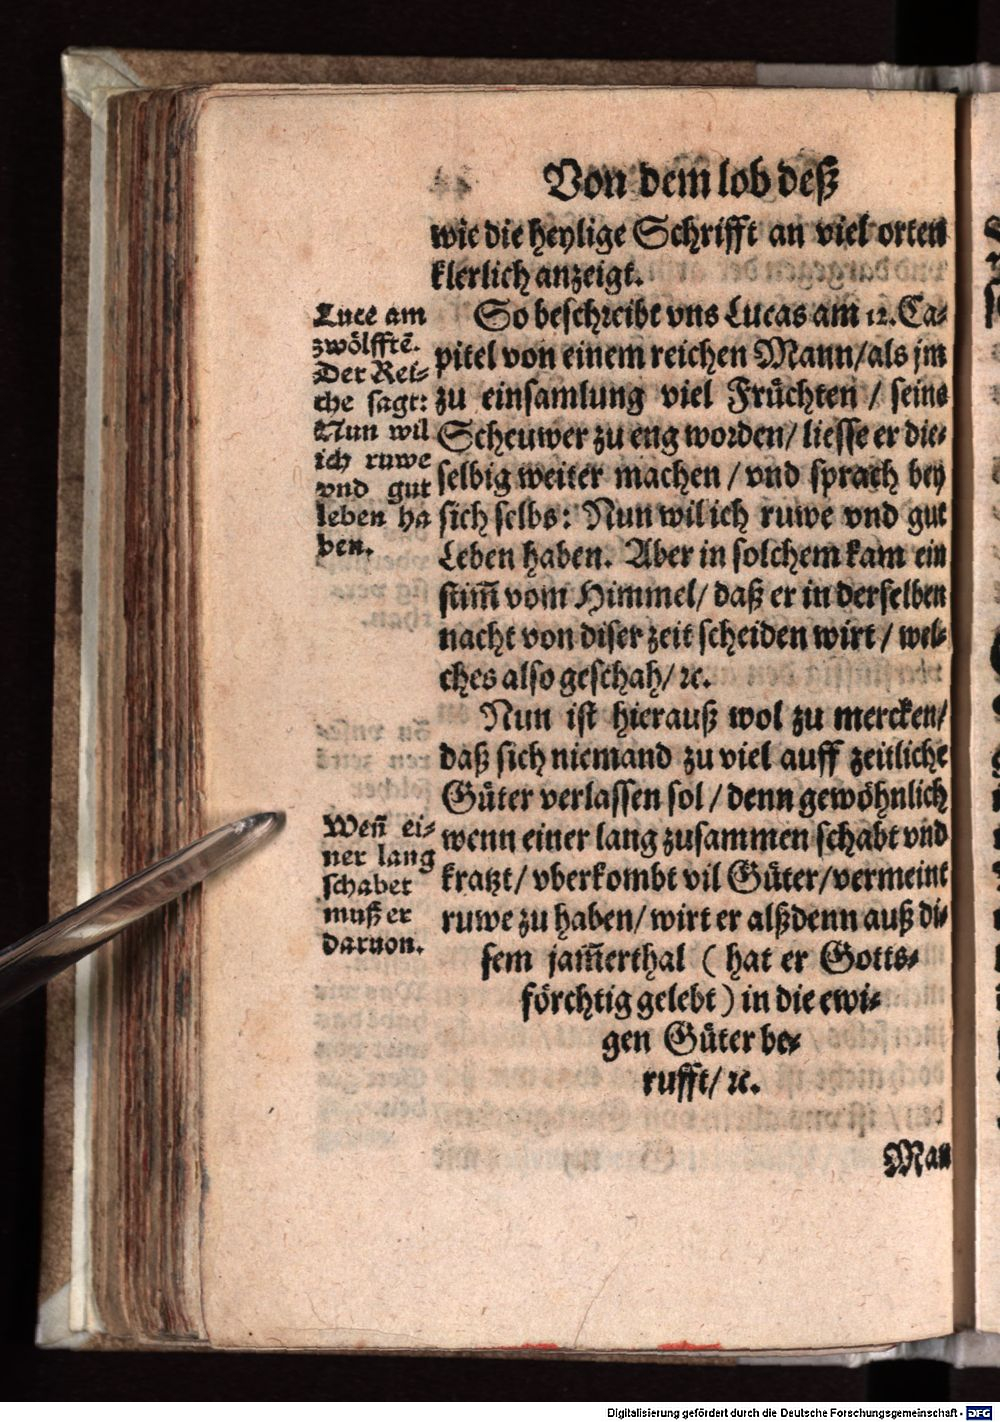 Von dem lob deß
wie die heylige Schrifft an viel orten
klerlich anzeigt.
Luce am
zwölfftẽ.
Der Rei-
che sagt:
Nun wil
ich ruwe
vnd gut
leben ha
ben.
So beschreibt vns Lucas am 12. Ca-
pitel von einem reichen Mann/als jm
zu einsamlung viel Früchten / seine
Scheuwer zu eng worden/ liesse er die-
selbig weiter machen / vnd sprach bey
sich selbs: Nun wil ich ruwe vnd gut
Leben haben. Aber in solchem kam ein
stim̃ vom Himmel/ daß er in derselben
nacht von diser zeit scheiden wirt / wel-
ches also geschah/ ꝛc.
Nun ist hierauß wol zu mercken/
daß sich niemand zu viel auff zeitliche
Güter verlassen sol / denn gewöhnlich
Weñ ei-
ner lang
schabet
muß er
daruon.
wenn einer lang zusammen schabt vnd
kratzt/ vberkombt vil Güter/vermeint
ruwe zu haben/ wirt er alßdenn auß di-
sem jam̃erthal ( hat er Gotts-
förchtig gelebt ) in die ewi-
gen Güter be-
rufft/ ꝛc.
Man
Digitalisierung gefördert durch die Deutsche Forschungsgemeinschaft - DFG